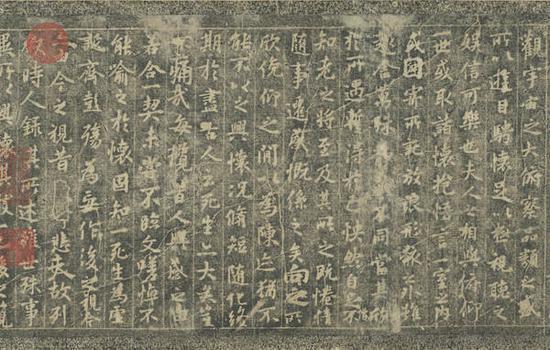 觀宇宙之大俯察品類之盛
所以遊目騁懷足以極視聽之
娛信可樂也夫人之相與俯仰
一世或取諸懷抱悟言一室之內
或因寄所託放浪形骸之外雖
趣舍萬殊不同當其欣
於所遇暫得於己怏然自足不
知老之將至及其所之既倦情
隨事遷感慨係之矣向之所
欣俛仰之間以為陳迹猶不
能不以之興懷況脩短隨化終
期於盡古人云死生亦大矣豈
不痛哉每攬昔人興感之由
若合一契未嘗不臨文嗟悼不
能喻之於懷固知一死生為虛
誕齊彭殤為妄作後之視今
亦今之視昔悲夫故列
時人錄其所述雖世殊事
異所以興懷其致